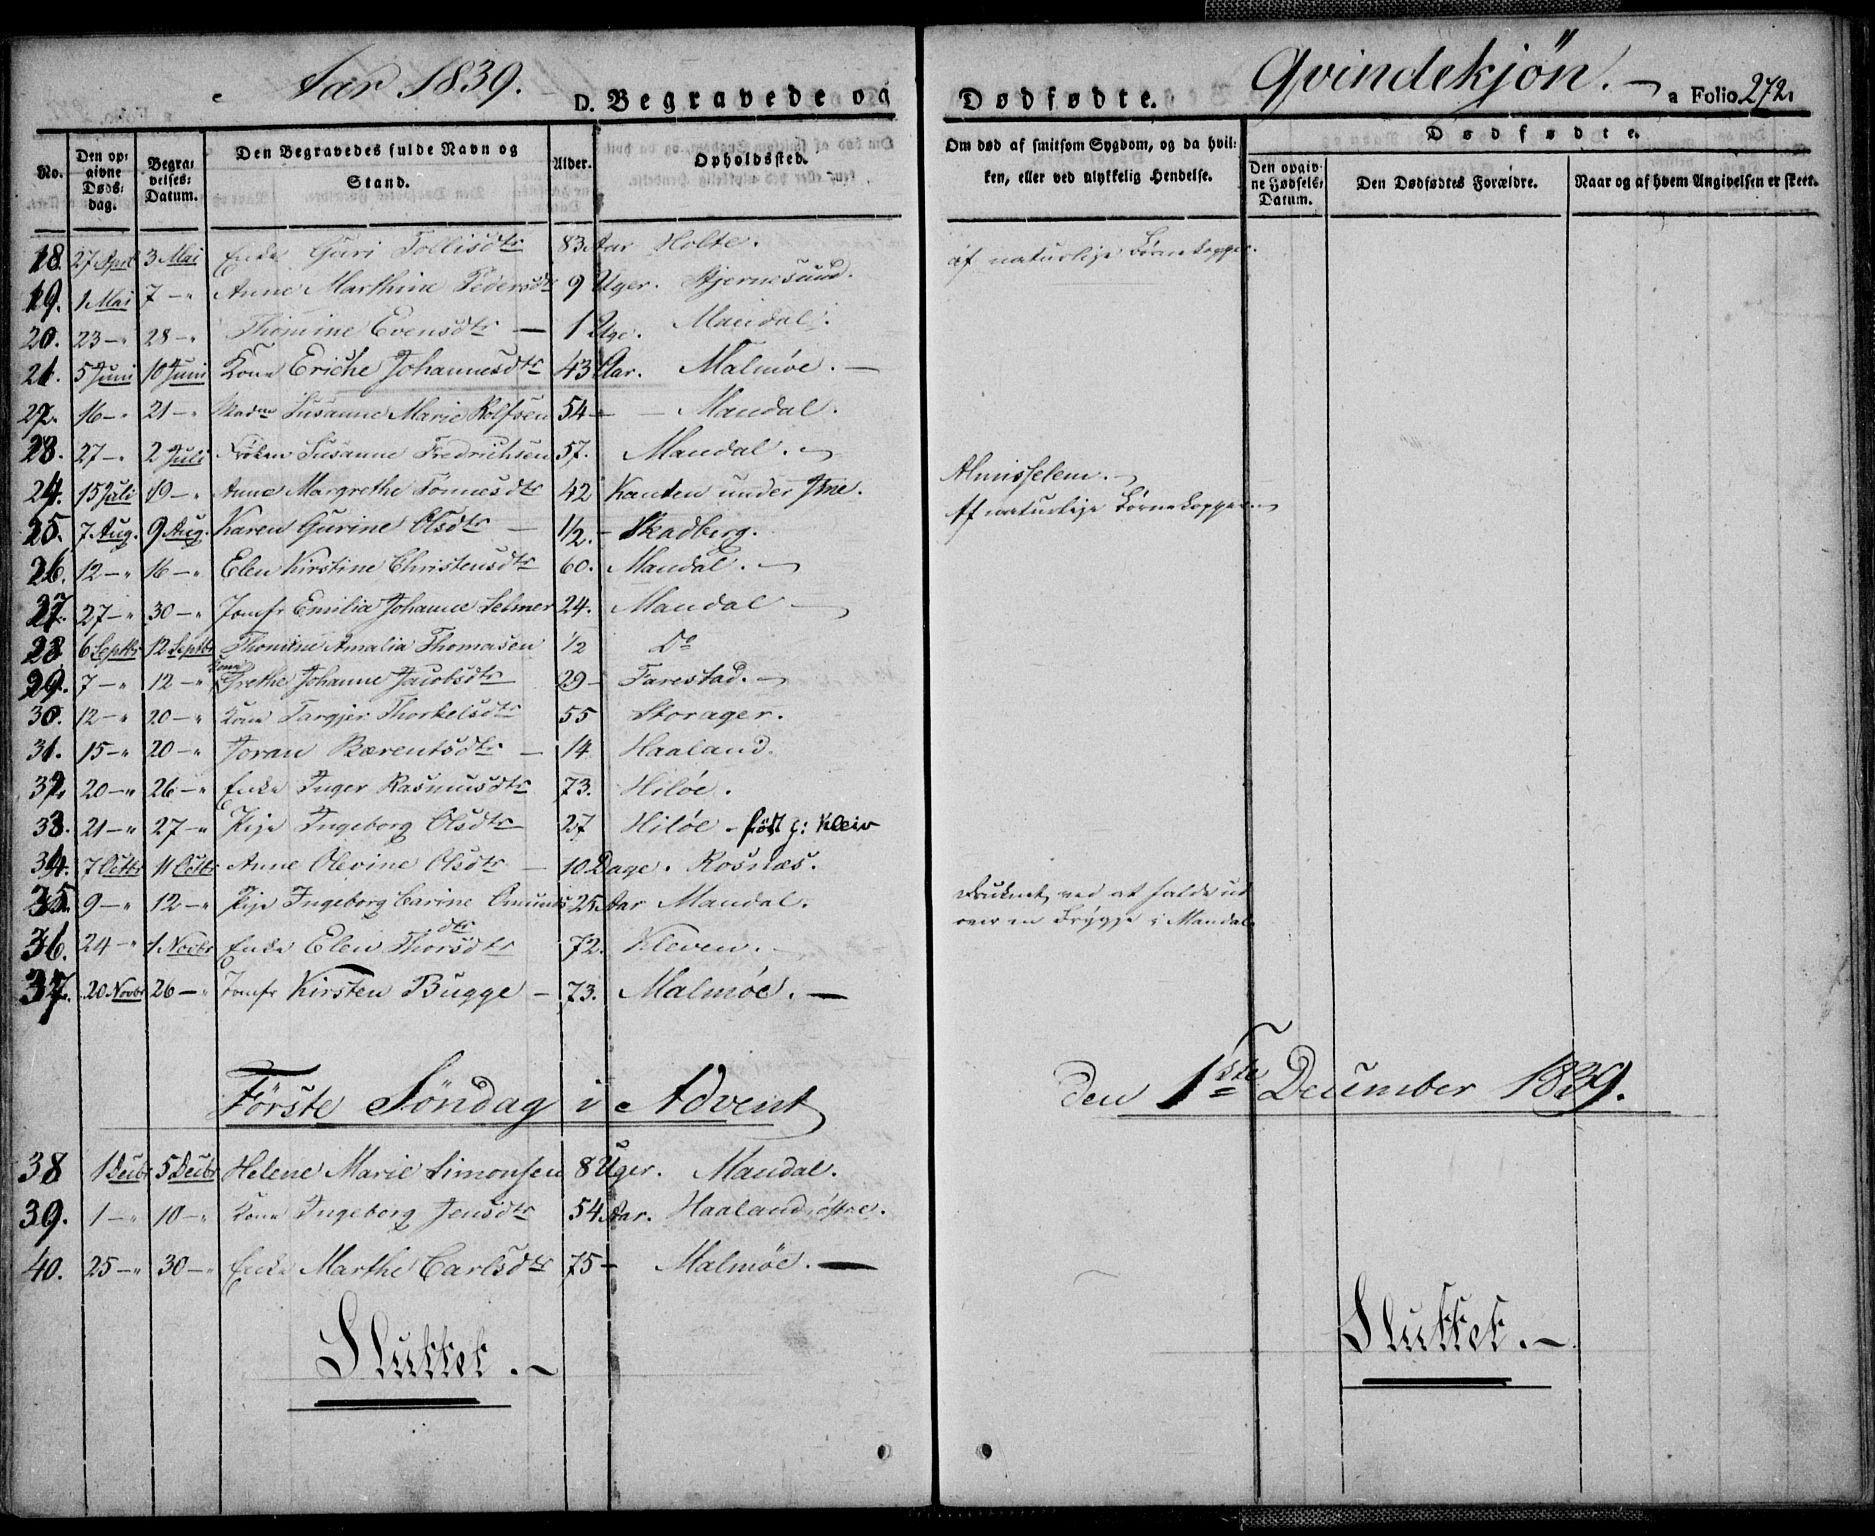 Aar 1839.
D. Begravede og Dødfødte. Qvindekjøn. a Folio 272.
No. Den opgivne Døds-dag. Begravelses-Datum. Den Begravedes fulde Navn og Stand. Alder. Opholdssted. Om død af smitsom Sygdom, og da hvilken, eller ved ulykkelig Hendelse. Dødfødte. Den opgivne Fødsels-Datum. Den Dødfødtes Forældre. Naar og af hvem Angivelsen er skeet.
18. 27 April 3 Mai Enke Guri Tollisdtr 83 Aar Holte. af naturlige Børnekopper.
19. 1 Mai 7 — " Anne Marthine Pedersdtr 9 Uger. Stjernesund.
20. 23 — " 28 — " Thomine Evensdtr — 1 Uge. Mandal.
21. 5 Juni 10 Juni Kone Eriche Johannesdtr 43 Aar. Malmøe. —
22. 16 — " 21 — " Madme Susanne Marie Rolfsen 54 — — Mandal.
23. 27 — " 2 Juli Frøken Susanne Fredrichsen 57. Mandal. —
24. 15 Juli 19 — " Anne Margrethe Tønnesdtr 42 Kanten under Ime. Almisselem. —
25. 7 Aug. 9 Aug. Karen Gurine Olsdtr — 1/2. — Skadberg. Af naturlige Børnekopper. —
26. 12 — " 16 — " Elen Kirstine Christensdtr 60. Mandal. —
27. 27 — " 30 — " Jomfr Emilia Johanne Selmer 24. Mandal —
28. 6 Septbr 12 Septbr Thomine Amalia Thomasen 1/2 Do
29. 7 — " 12 — " Kone Grethe Johanne Jacobsdtr 29 — Farestad. —
30. 12 — " 20 — " Kone Targjer Thorkelsdtr 55 Storager.
31. 15 — " 20 — " Joran Bærentsdtr — 14 Haaland.
32. 20 — " 26 — " Enke Inger Rasmusdtr 73. Hiløe.
33. 21 — " 27 — " Pige Ingeborg Olsdtr 27 Hiløe — født p: Kleiv
34. 7 Octbr 11 Octbr Anne Olevine Olsdtr — 10 Dage. Rosnæs.
35. 9 — " 12 — " Pige Ingeborg Carine Omunds 25 Aar Mandal. Druknet ved at falde ud
dtr over en Brygge i Mandal.
36. 24 — " 1 Novbr Enke Elen Thorsdtr 72. Kleven.
37. 20 Novbr 26 — " Jomfr Kirsten Bugge — 73. Malmøe. —
Förste Söndag i Advent den 1ste December 1839.
38 1 Decbr 5 Decbr Helene Marie Simonsen 8 Uger. Mandal.
39. 1 — " 10 — " Kone Ingeborg Jensdtr 54 Aar. Haaland østre.
40. 25 — " 30 — " Enke Marthe Carlsdtr 75 — Malmøe. —
Sluttet. — Sluttet. —